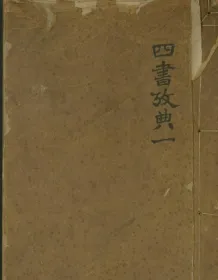 四書攷典一